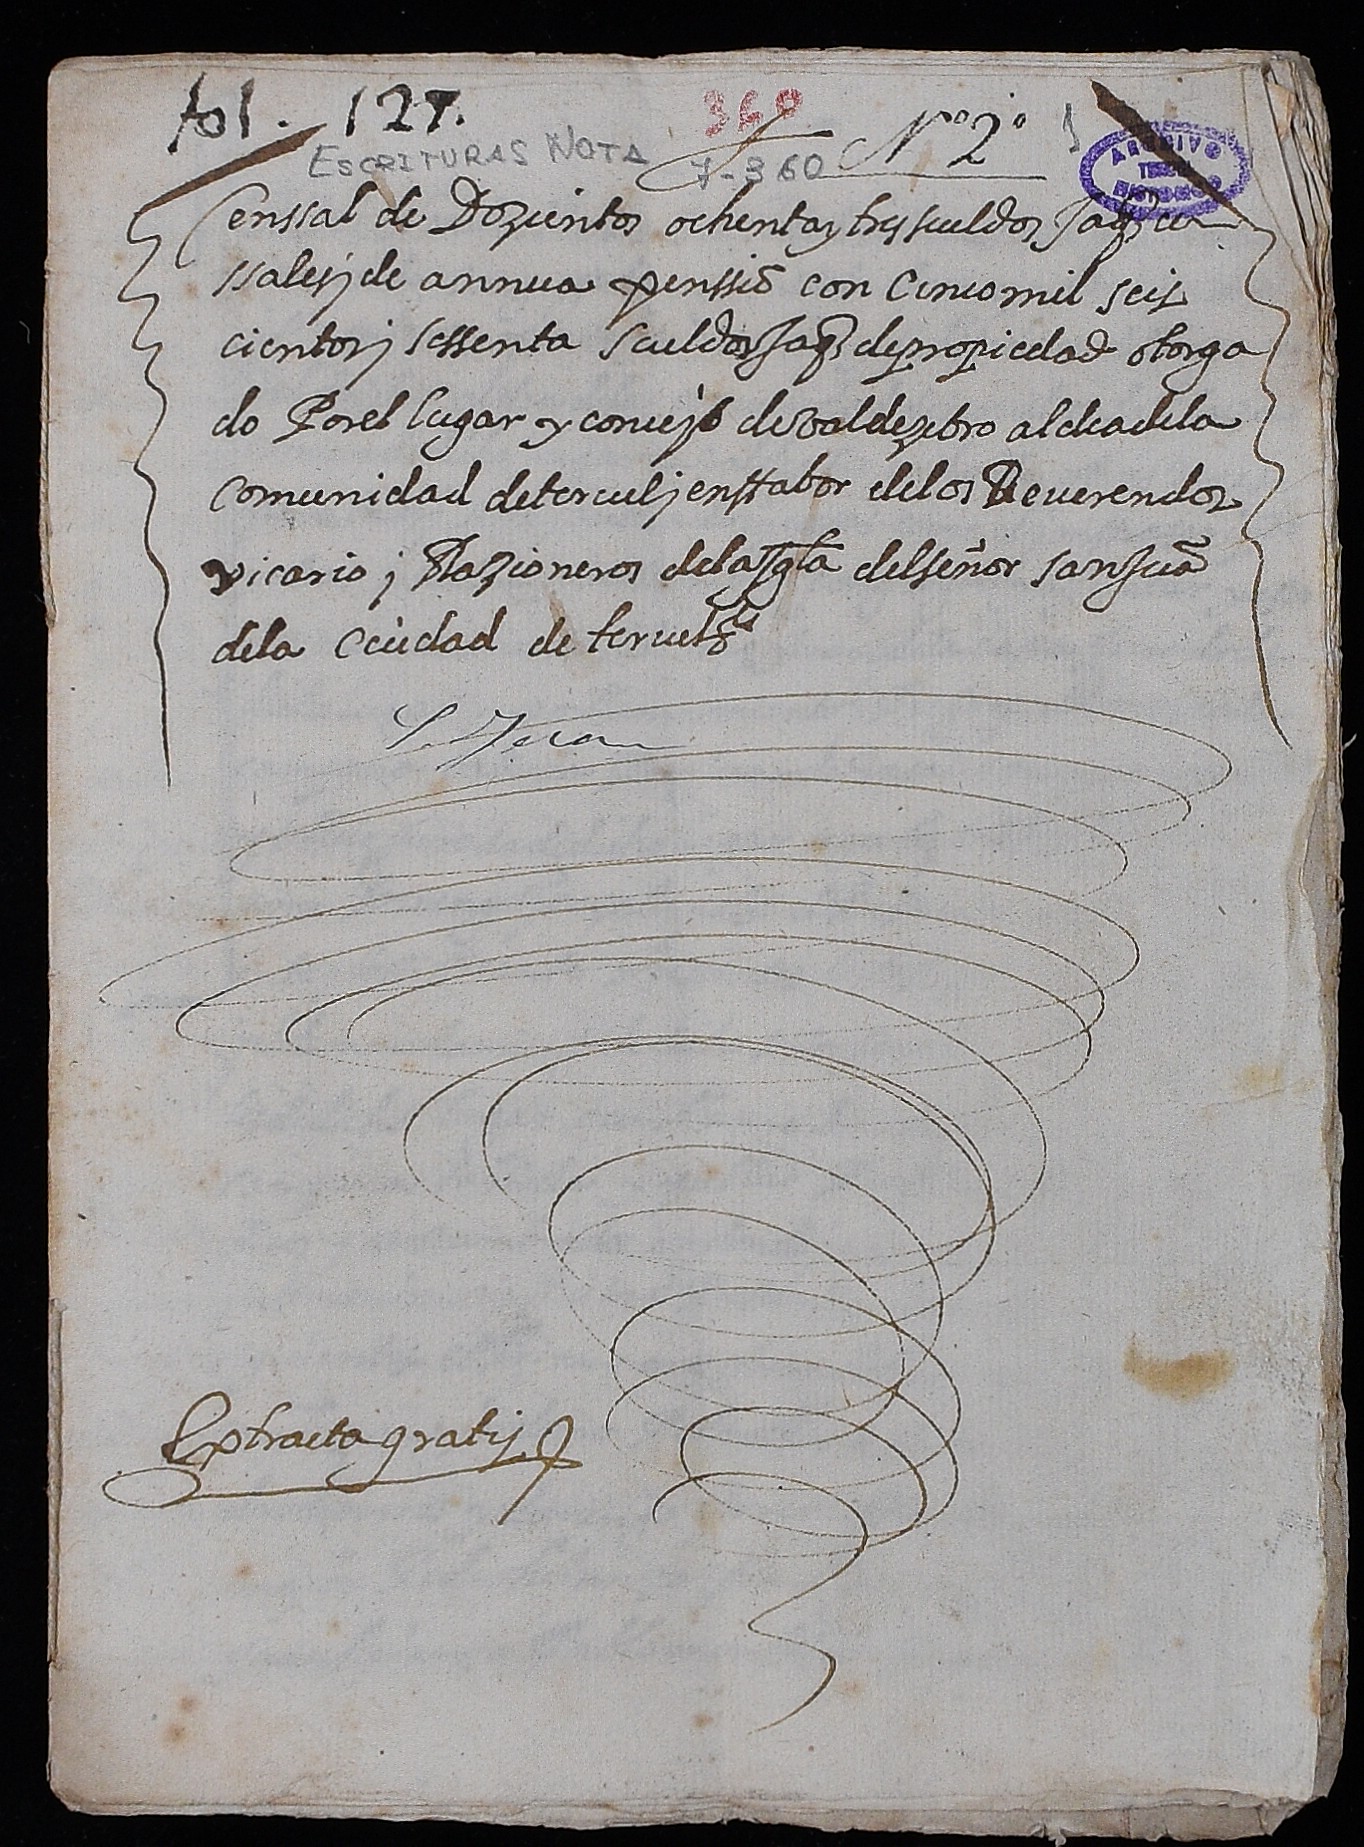 fol. 127.
360
Nº 2º
1
ESCRITURAS NOTA
7-360
ARCHIVO
Censsal de Dozientos ochenta y tres sueldos Jaqs cen
ssales j de annua penssiō con Cinco mil seis
cientos j sessenta sueldos Jaqs de propiedad otorga
do Por el lugar y concejo de valdezebro aldea de la
Comunidad de teruel j en ffabor de los Reuerendos
vicario j Razioneros de la Iglā del señor san Juā
de la Ciudad de teruel
Extracta gratis